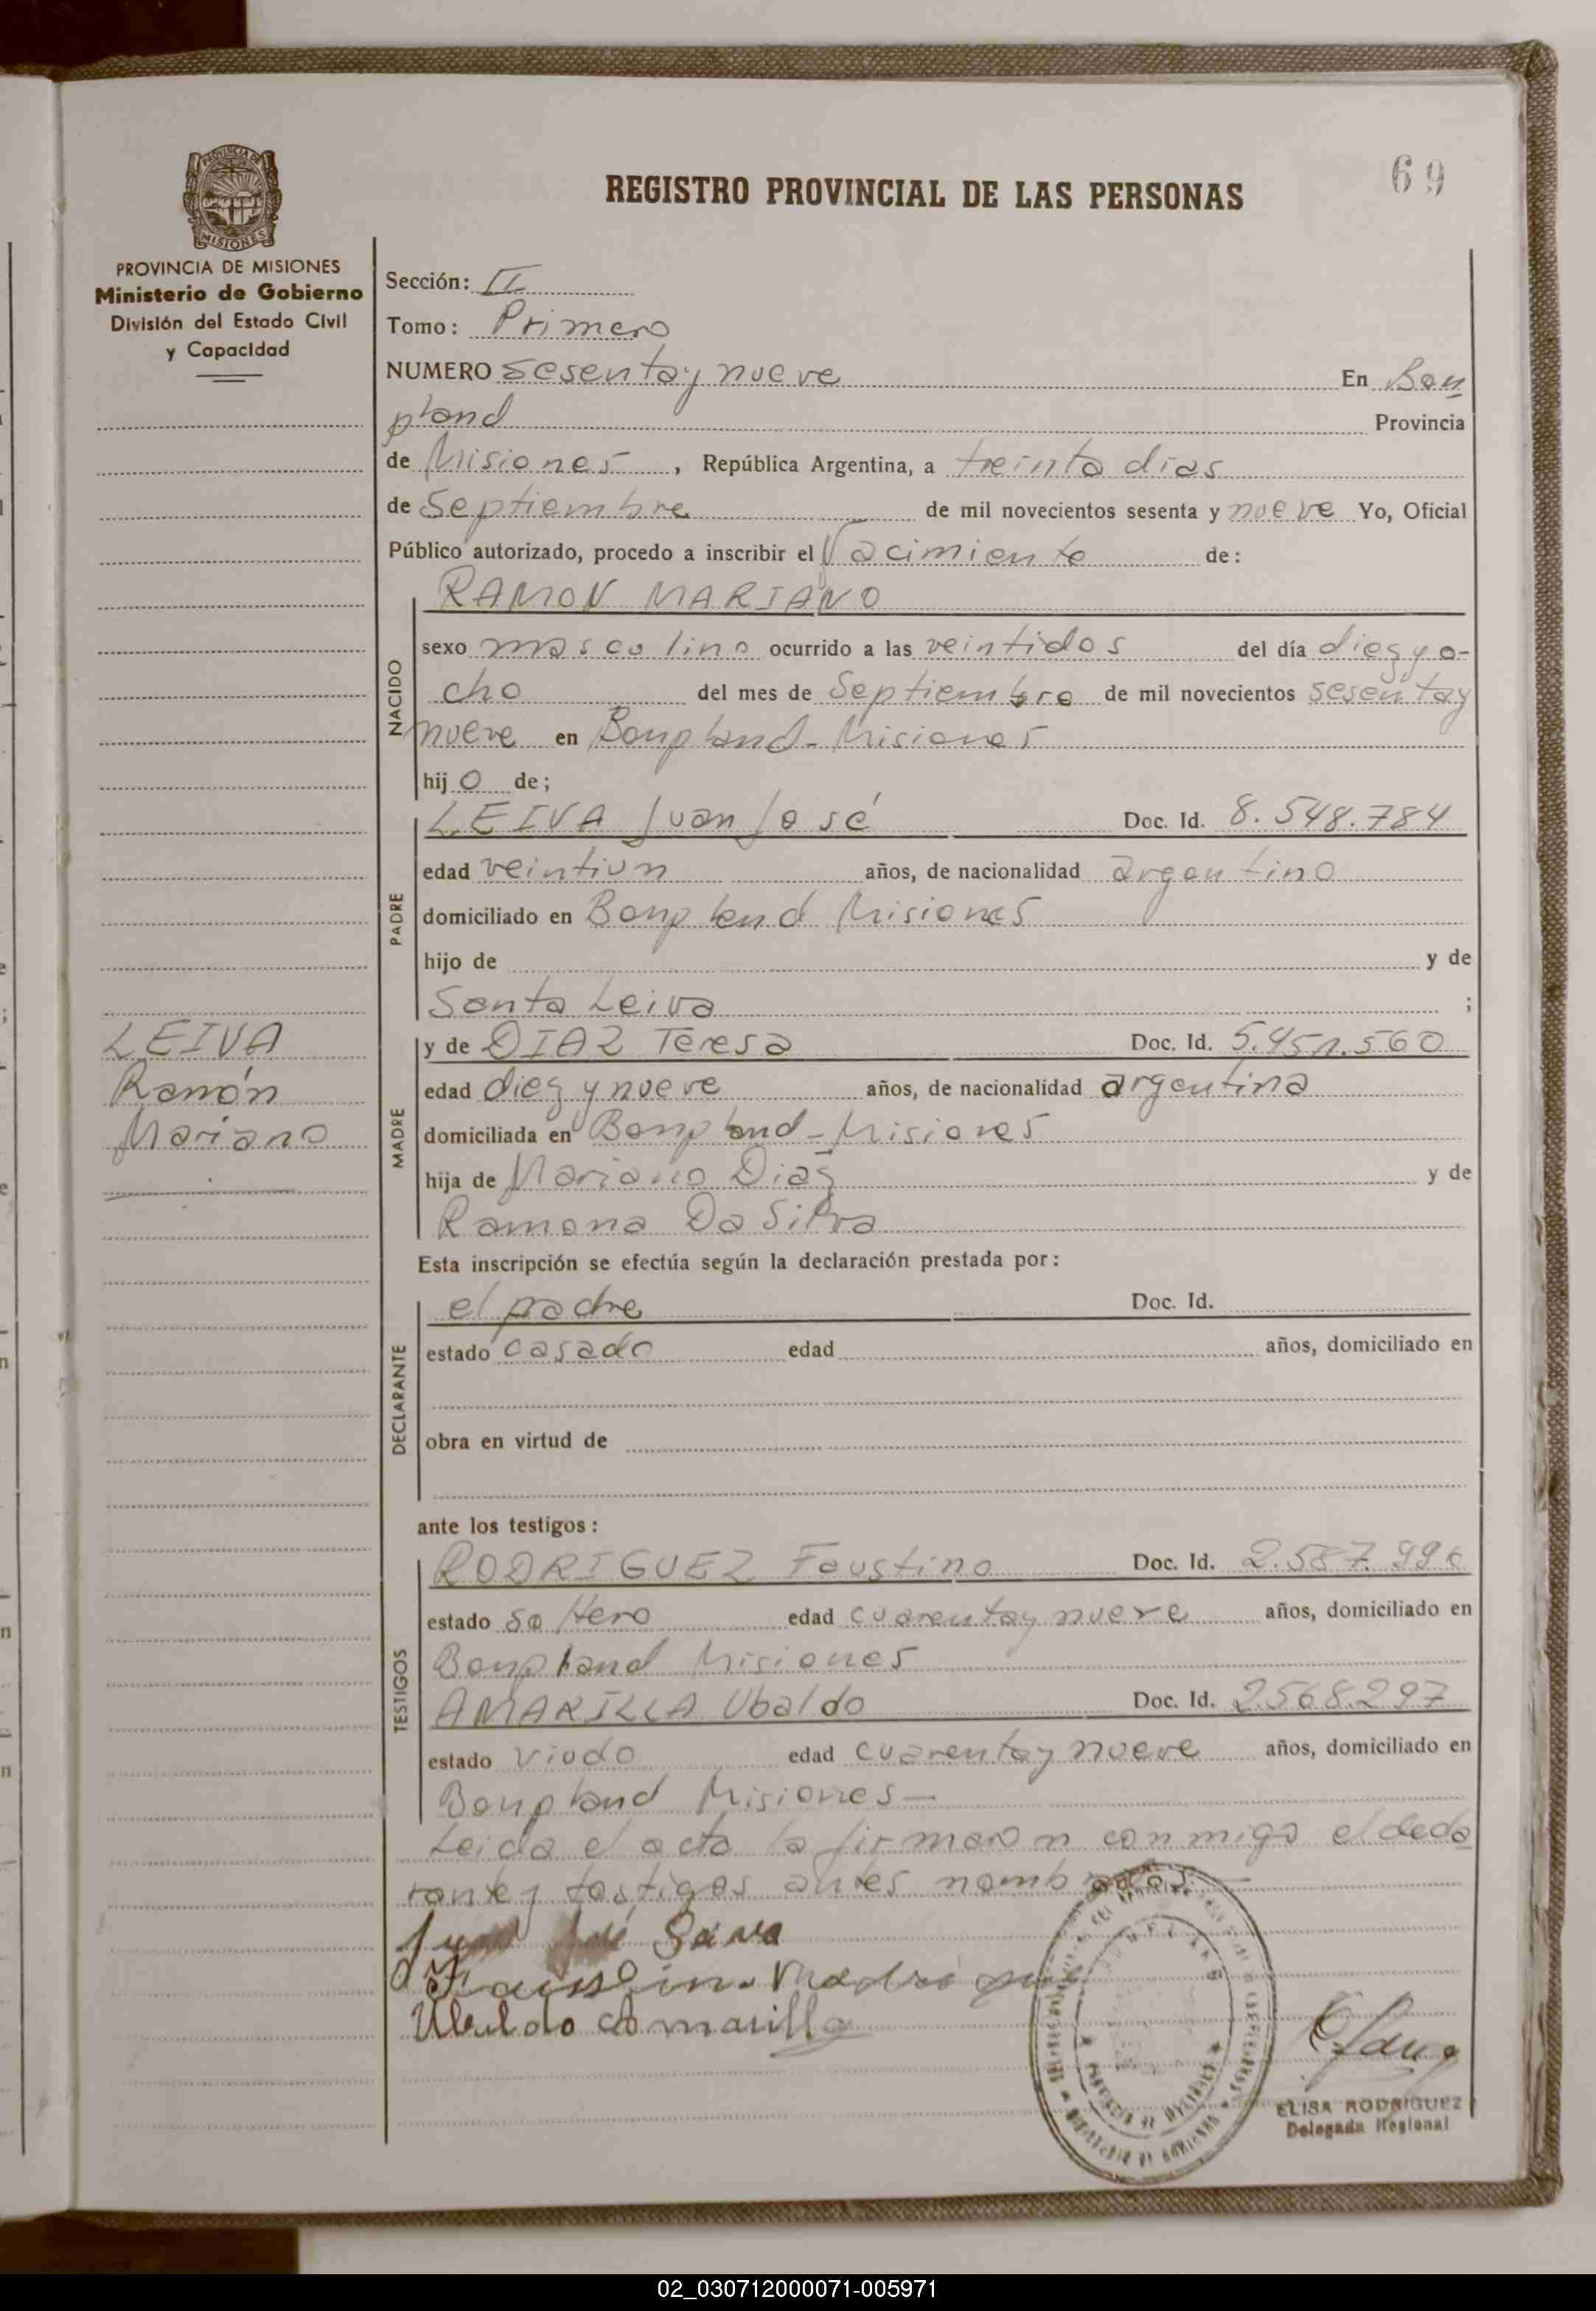 69
REGISTRO PROVINCIAL DE LAS PERSONAS
PROVINCIA DE
MISIONES
PROVINCIA DE MISIONES
Ministerio de Gobierno
División del Estado Civil
y Capacidad
Sección: II
Tomo: Primero
NUMERO sesenta y nueve En Bon
pland Provincia
de Misiones, República Argentina, a treinta dias
de Septiembre de mil novecientos sesenta y nueve Yo, Oficial
Público autorizado, procedo a inscribir el Nacimiento de:
NACIDO
RAMON MARIANO
sexo masculino ocurrido a las veintidos del día diez y o-
cho del mes de Septiembre de mil novecientos sesenta y
nueve en Bonpland - Misiones
hijo de;
PADRE
LEIVA Juan José Doc. Id. 8.548.784
edad veintiun años, de nacionalidad argentino
domiciliado en Bonpland Misiones
hijo de y de
Santa Leiva ;
LEIVA
Ramón
Mariano
MADRE
y de DIAZ Teresa Doc. Id. 5.451.560
edad diez y nueve años, de nacionalidad argentina
domiciliada en Bonpland - Misiones
hija de Mariano Diaz y de
Ramona Da Silva
Esta inscripción se efectúa según la declaración prestada por:
DECLARANTE
el padre Doc. Id.
estado casado edad años, domiciliado en
obra en virtud de
ante los testigos:
TESTIGOS
RODRIGUEZ Faustino Doc. Id. 2.587.996
estado soltero edad cuarenta y nueve años, domiciliado en
Bonpland Misiones
AMARILLA Ubaldo Doc. Id. 2.568.297
estado viudo edad cuarenta y nueve años, domiciliado en
Bonpland Misiones -
Leida el acta la firmaron conmigo el decla
rante y testigos antes nombrados
Juan José
Faustino Rodrigue
Ubaldo Amarilla
PROVINCIA DE MISIONES
MINISTERIO DE GOBIERNO
ELISA RODRIGUEZ
Delegada Regional
02_030712000071-005971